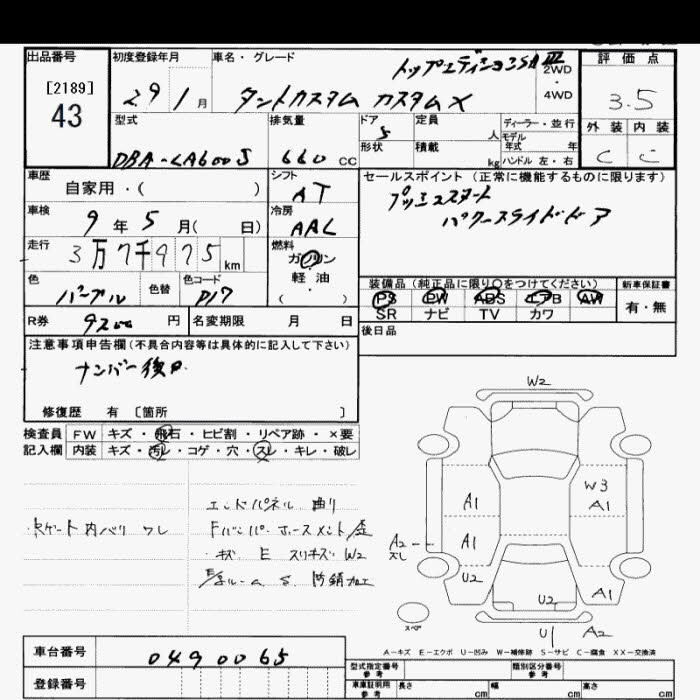 出品番号
[2189]
43
初度登録年月
29 1月
車名・グレード
トップエディションSAⅢ
タントカスタム カスタムX
2WD
・
4WD
評価点
3.5
外装 内装
C C
型式
DBA-LA600S
排気量
660 CC
ドア
5
形状
定員
人
積載
kg
ディーラー・並行
モデル
年式 年
ハンドル 左・右
車歴
自家用・( )
シフト
AT
セールスポイント (正常に機能するものに限ります)
プッシュスタート
パワースライドドア
車検
9年5月( 日)
冷房
AAC
走行
3万7千975km
燃料
ガソリン
・
軽油
( )
色
パープル
色替
色コード
P17
装備品 (純正品に限り○をつけてください)
PS PW ABS エアB AW
SR ナビ TV カワ
新車保証書
有・無
R券
9200 円
名変期限 月 日
後日品
注意事項申告欄(不具合内容等は具体的に記入して下さい)
ナンバー後日
修復歴 有 〔箇所 〕
検査員 FW キズ・飛石・ヒビ割・リペア跡・×要
記入欄 内装 キズ・汚レ・コゲ・穴・スレ・キレ・破レ
エンドパネル 曲り
内バリ ワレ
キズ E スリキズ W2
S 防錆加工
W2
W3
A1
A1
A1
A2
スレ
U2
U2
A1
スペア
U1
A2
A-キズ E-エクボ U-凹み W-補修跡 S-サビ C-腐食 XX-交換済
車台番号
0490065
登録番号
型式指定番号
参考
類別区分番号
参考
車庫証明用
参考
長さ cm
幅 cm
高さ cm